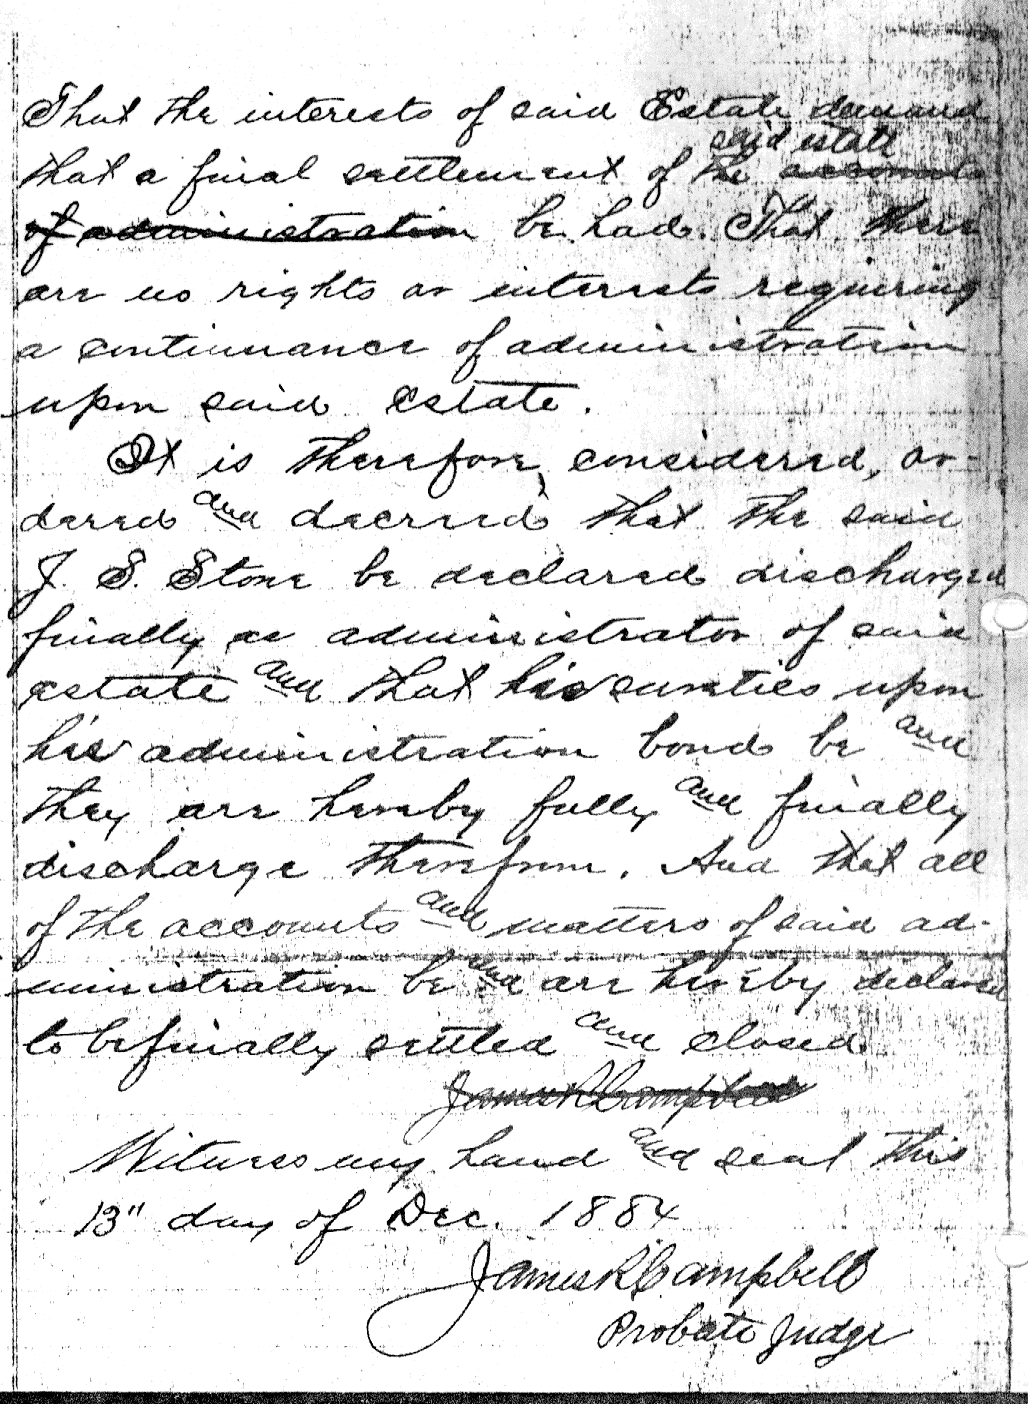 That the interests of said Estate demand
said estate
that a final settlement of the accounts
of administration be had. That there
are no rights or interests requiring
a continuance of administration
upon said estate.
It is therefore, considered, or-
dered and decreed that the said
J. S. Stone be declared discharged
finally as administrator of said
estate and that his sureties upon
his administration bond be and
they are hereby fully and finally
discharge therefrom. And that all
of the accounts and matters of said ad-
ministration be and are hereby declared
to be finally settled and closed.
James R Campbell
Witness my hand and seal this
13" day of Dec. 1884
James R Campbell
Probate Judge